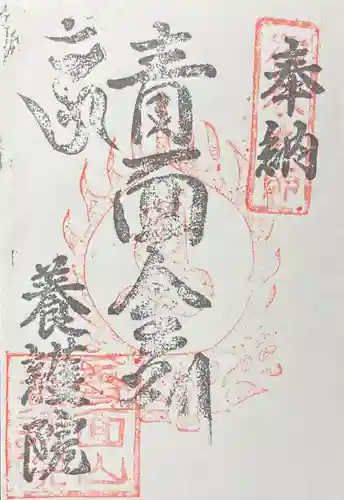 奉納
青面金剛
養護院